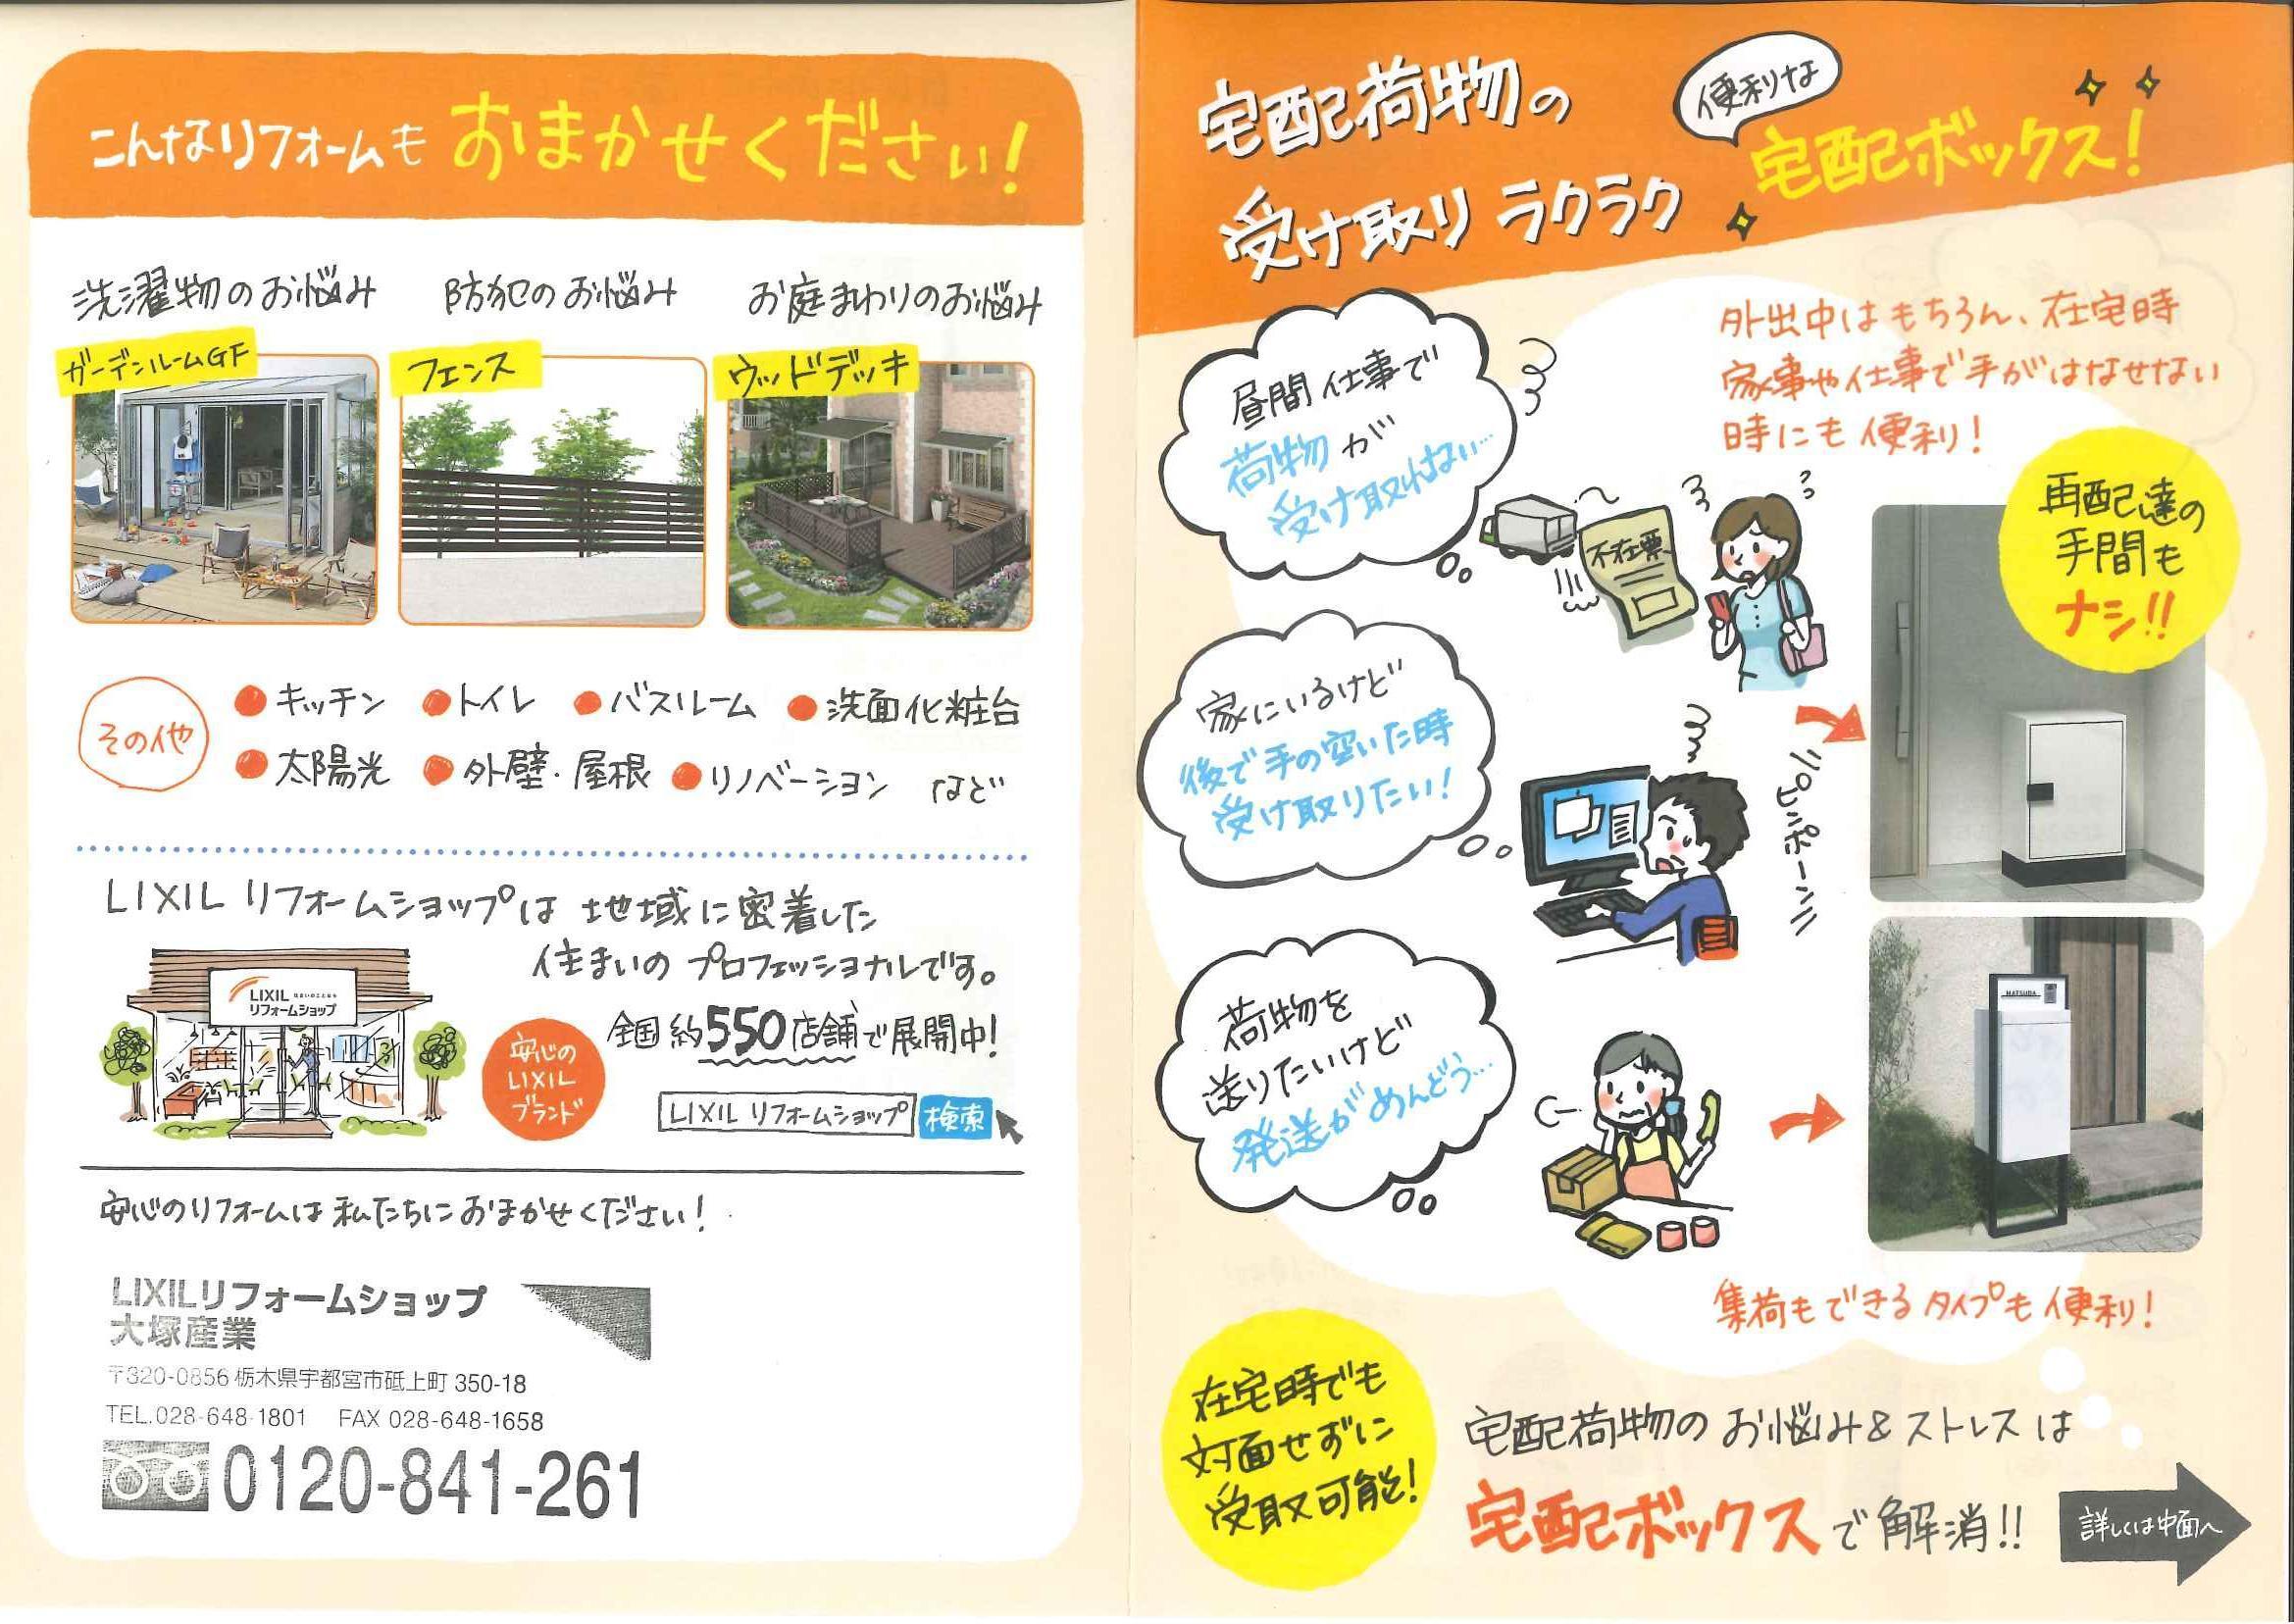 こんなリフォームも おまかせください!
洗濯物のお悩み
ガーデンルームGF
防犯のお悩み
フェンス
お庭まわりのお悩み
ウッドデッキ
その他
●キッチン ●トイレ ●バスルーム ●洗面化粧台
●太陽光 ●外壁・屋根 ●リノベーション など
LIXIL リフォームショップは 地域に密着した
住まいの プロフェッショナルです。
LIXIL
リフォームショップ
安心の
LIXIL
ブランド
全国 約550店舗で展開中!
LIXIL リフォームショップ 検索
安心のリフォームは 私たちに おまかせください!
LIXILリフォームショップ
大塚産業
〒320-0856 栃木県宇都宮市砥上町 350-18
TEL.028-648-1801 FAX 028-648-1658
0120-841-261
宅配荷物の
受け取り ラクラク
便利な
宅配ボックス!
外出中はもちろん、在宅時
家事や仕事で手がはなせない
時にも便利!
昼間 仕事で
荷物が
受け取れない…
不在票
再配達の
手間も
ナシ!!
家にいるけど
後で手の空いた時
受け取りたい!
ピンポーン
荷物を
送りたいけど
発送がめんどう…
MATSUDA
集荷もできるタイプも便利!
在宅時でも
対面せずに
受取可能!
宅配荷物の お悩み&ストレスは
宅配ボックスで解消!!
詳しくは中面へ